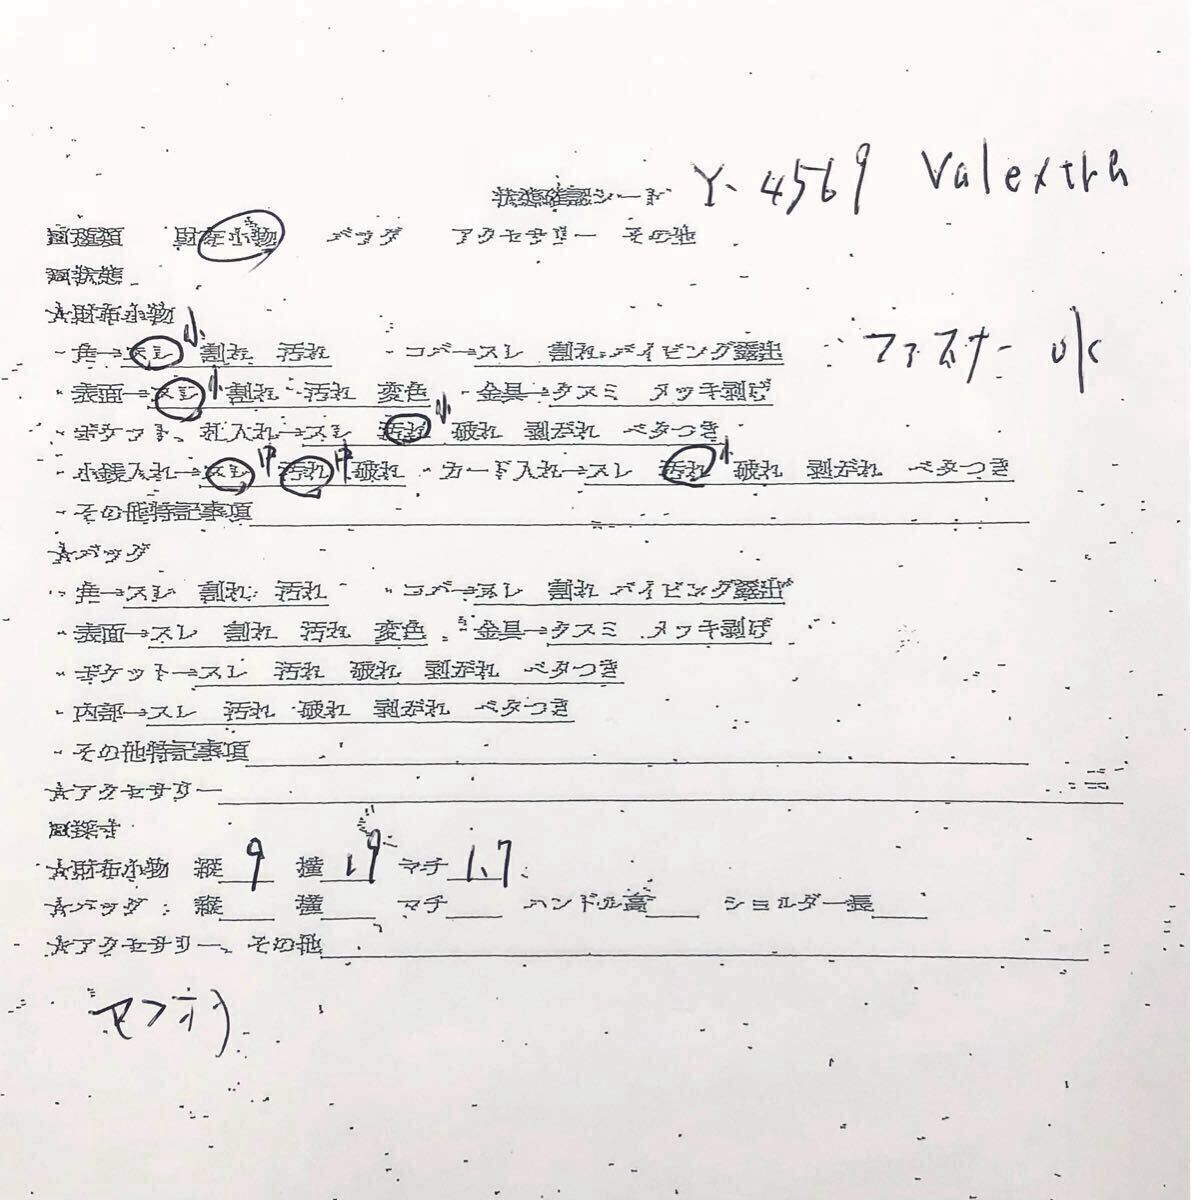 状態確認シート Y-4569 Valextra
□種類 財布小物 バッグ アクセサリー その他
□状態
☆財布小物
・角→スレ 小 割れ 汚れ ・コバ→スレ 割れ パイピング露出 ファスナー ok
・表面→スレ 小 割れ 汚れ 変色 ・金具→クスミ メッキ剥げ
・ポケット、札入れ→スレ 汚れ 小 破れ 剥がれ ベタつき
・小銭入れ→スレ 中 汚れ 中 破れ ・カード入れ→スレ 汚れ 小 破れ 剥がれ ベタつき
・その他特記事項
☆バッグ
・角→スレ 割れ 汚れ ・コバ→スレ 割れ パイピング露出
・表面→スレ 割れ 汚れ 変色 ・金具→クスミ メッキ剥げ
・ポケット→スレ 汚れ 破れ 剥がれ ベタつき
・内部→スレ 汚れ 破れ 剥がれ ベタつき
・その他特記事項
☆アクセサリー
□採寸
☆財布小物 縦 9 横 19 マチ 1.7
☆バッグ 縦 横 マチ ハンドル高 ショルダー長
☆アクセサリー、その他